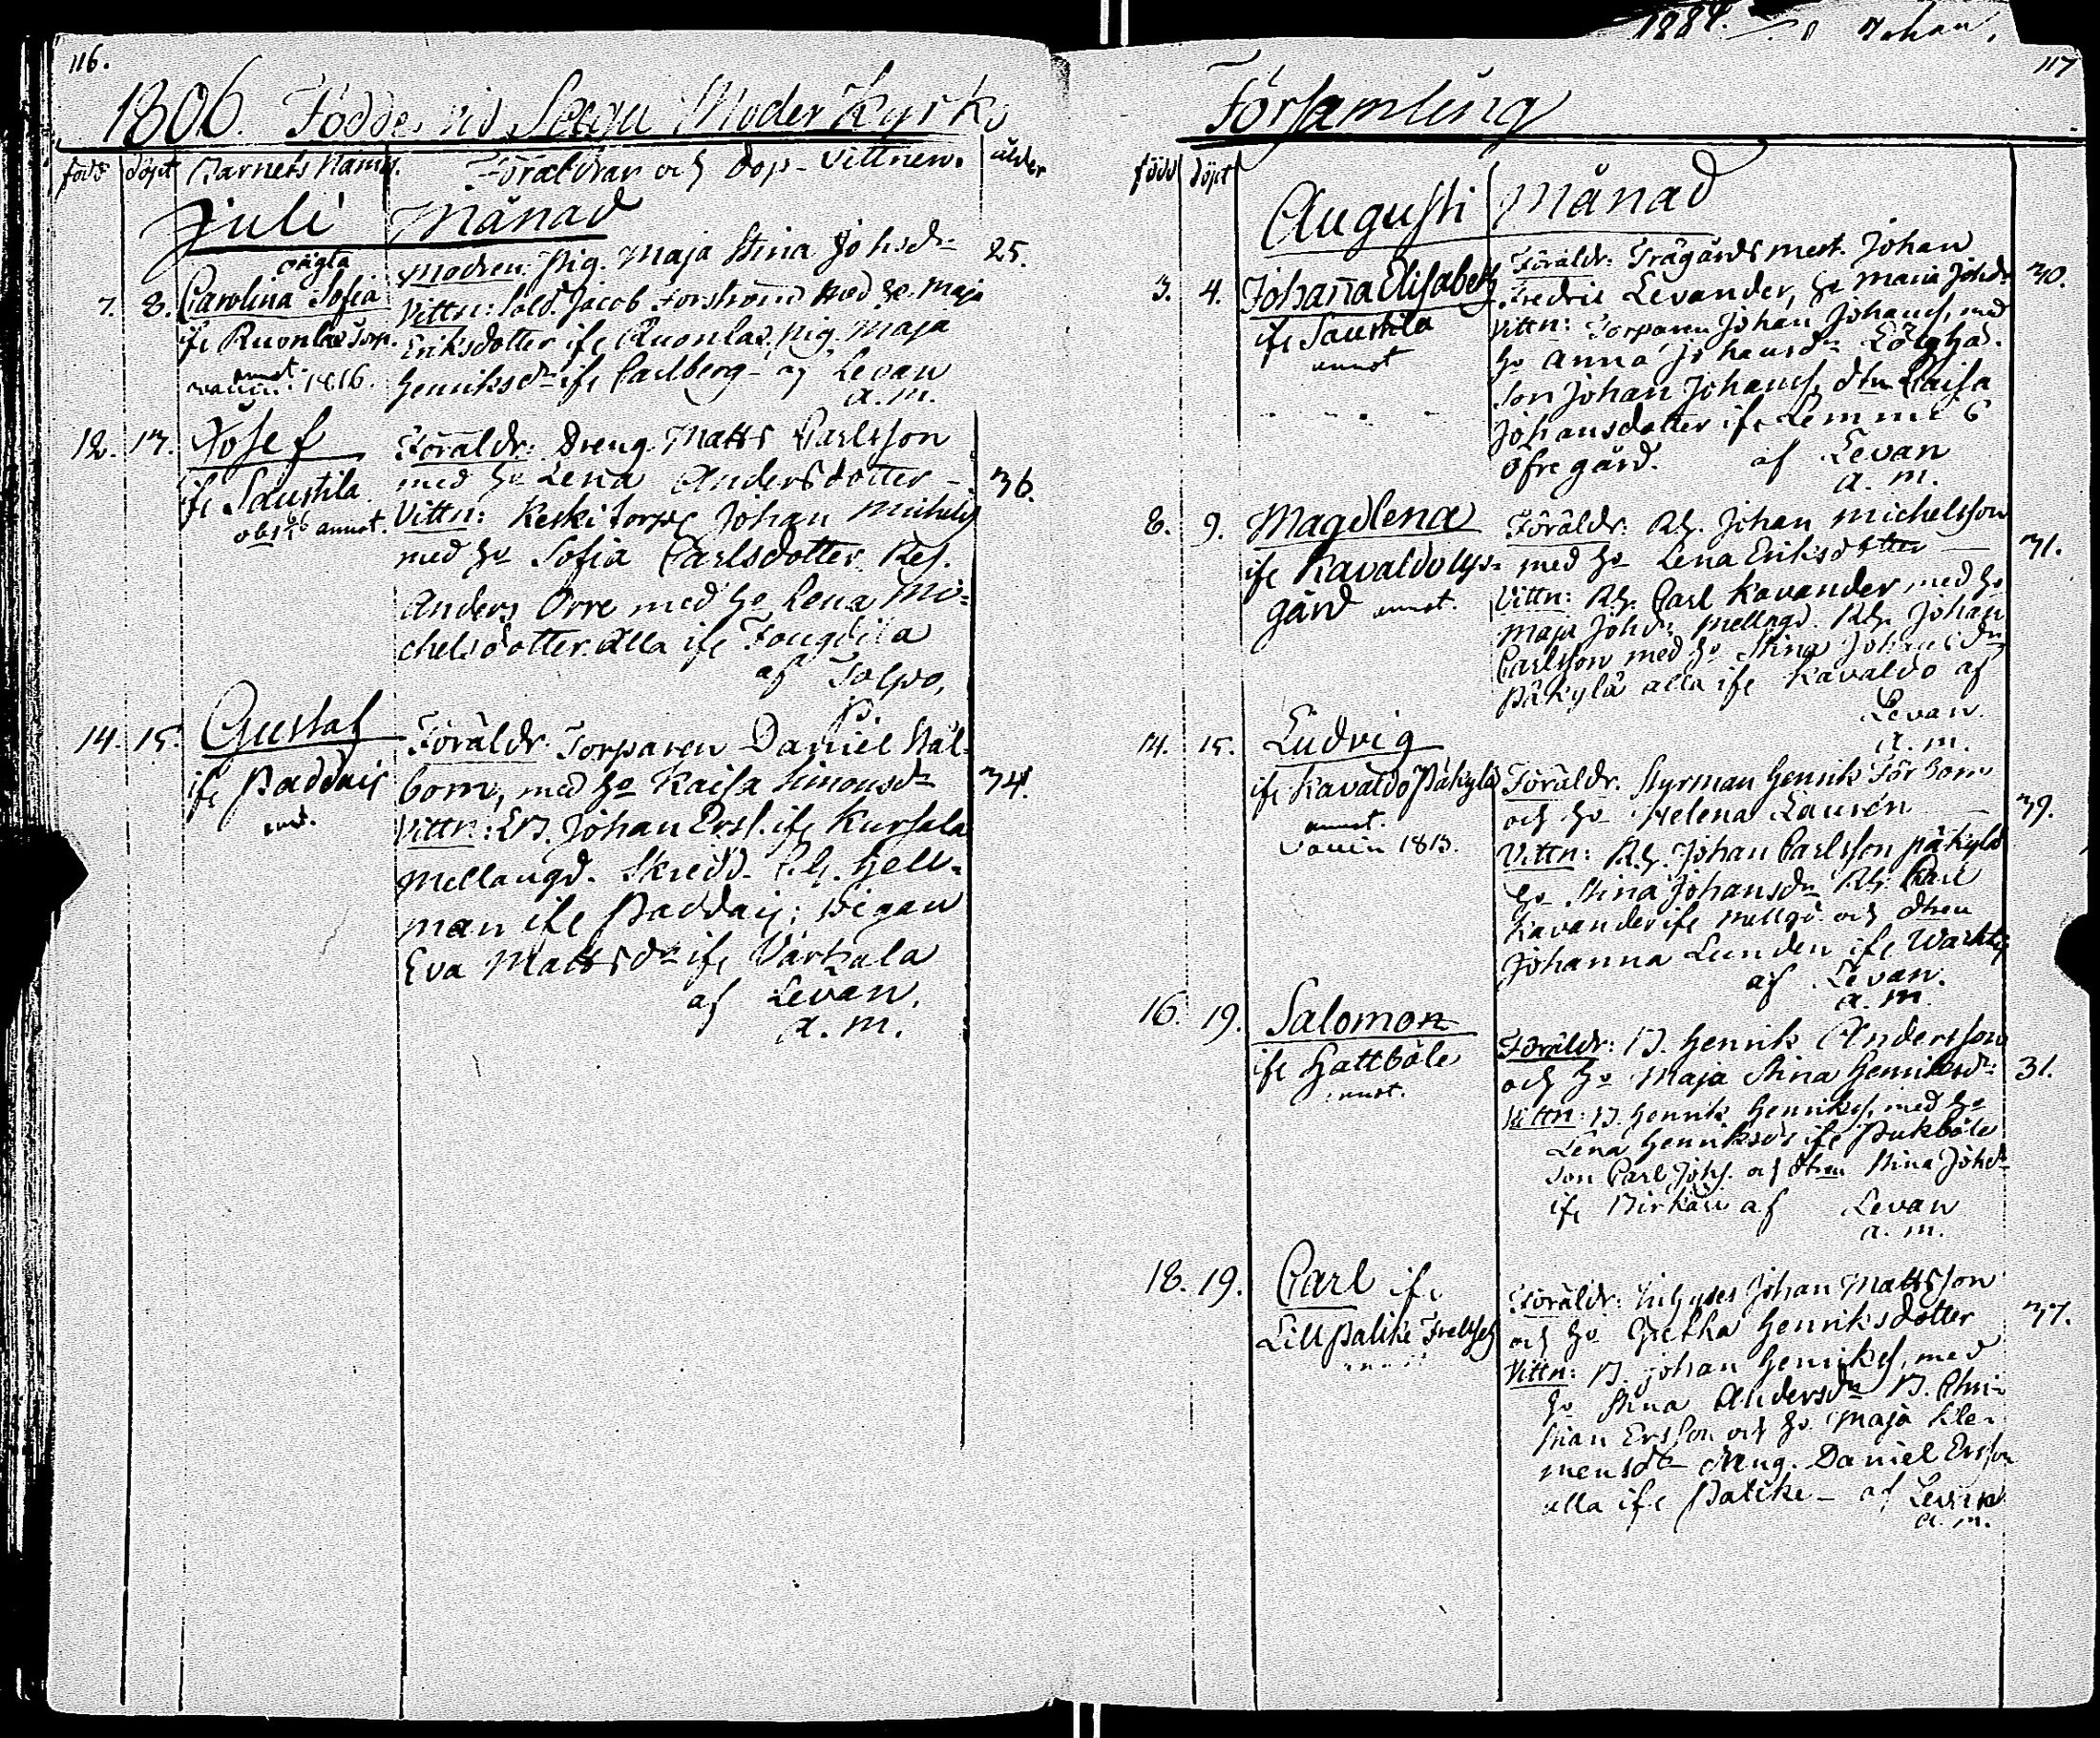 116.
1806. Födde vid Sagu Moder Kyrko
född döpt Barnets Namn. Föräldrar och dop-vittnen. ålder
Juli Månad
oägta
7. 8. Carolina Sofia
ifr Ruonlax Torp.
1816.
Modren: Pig. Maja Stina Johsdr 25.
Vittn: Sold. Jacob Forström med Hu Maja
Eriksdotter ifr Ruonlax, pig. Maja
Henriksdr ifr Carlberg - af Levan
a. m.
12. 13. Josef
ifr Saustila
annot.
Föräldr: Dreng Matts Carlsson
med Hu Lena Andersdotter - 36.
Vittn: Keski torp Johan Michels
med Hu Sofia Carlsdotter Res.
Anders Orre med Hu Lena Mi-
chelsdotter. alla ifr
af Tolpo,
P.
14. 15. Gustaf
ifr Paddais
Föräldr. Torparen Daniel Stål-
bom, med Hu Kaisa Simonsdr 34.
Vittn: B. Johan Ersf. ifr Kursala
Mellangd. Skredd. Hell-
man ifr Paddais; Pigan
Eva Mattsdr ifr Värkala
af Levan.
a. m.
1884. Johan.
117
Församling
född döpt
Augusti Månad
3. 4. Johanna Elisabeth
ifr Saustila
annot
Föräldr: Trägårds mest. Johan
Fredric Levander, Hu Maria Johsdr 30.
Vittn: Torparen Johan Johansf, med
Hu Anna Johansdr
Son Johan Johansf, dtn Caisa
Johansdotter ifr Lemmi
Öfregård. af Levan
a. m.
8. 9. Magdlena
ifr Kavaldo
gård annot.
Föräldr: Rh. Johan Michelsson
med Hu Lena Eriksdotter 31.
Vittn: Rh. Carl Kavander, med Hu
Maja Johdr Mellngd. Rh. Johan
Carlsson med Hu Stina Johansdr
Päkylä alla ifr Kavaldo af
Levan.
a. m.
14. 15. Ludvig
ifr Kavaldo Päkylä
annot.
1813.
Föräldr. Styrman Henrik Törbom
och Hu Helena Laurén 39.
Vittn: Rh. Johan Carlsson Päkylä
Hu Stina Johansdr Rh. Carl
Kavander ifr Mellgd. och dtren
Johanna Lunden ifr
af Levan.
a. m.
16. 19. Salomon
ifr Hattböle
annot.
Föräldr: B. Henrik Andersson
och Hu Maja Stina Henriksdr 31.
Vittn: B. Henrik Henriksf, med Hu
Lena Henriksdr ifr Pukböle
Son Carl Johs. och dtren Stina Johsdr
ifr af Levan
a. m.
18. 19. Carl ifr
Lill Palike Frelseh
Föräldr: Inhyses Johan Mattsson
och Hu Gretha Henriksdotter 37.
Vittn: B. Johan Henriksf, med
Hu Stina Andersdr B. Chri-
stian Ersson och Hu Maja Kle-
mensdr dräng. Daniel Ersson
alla ifr Palike - af Levan
a. m.